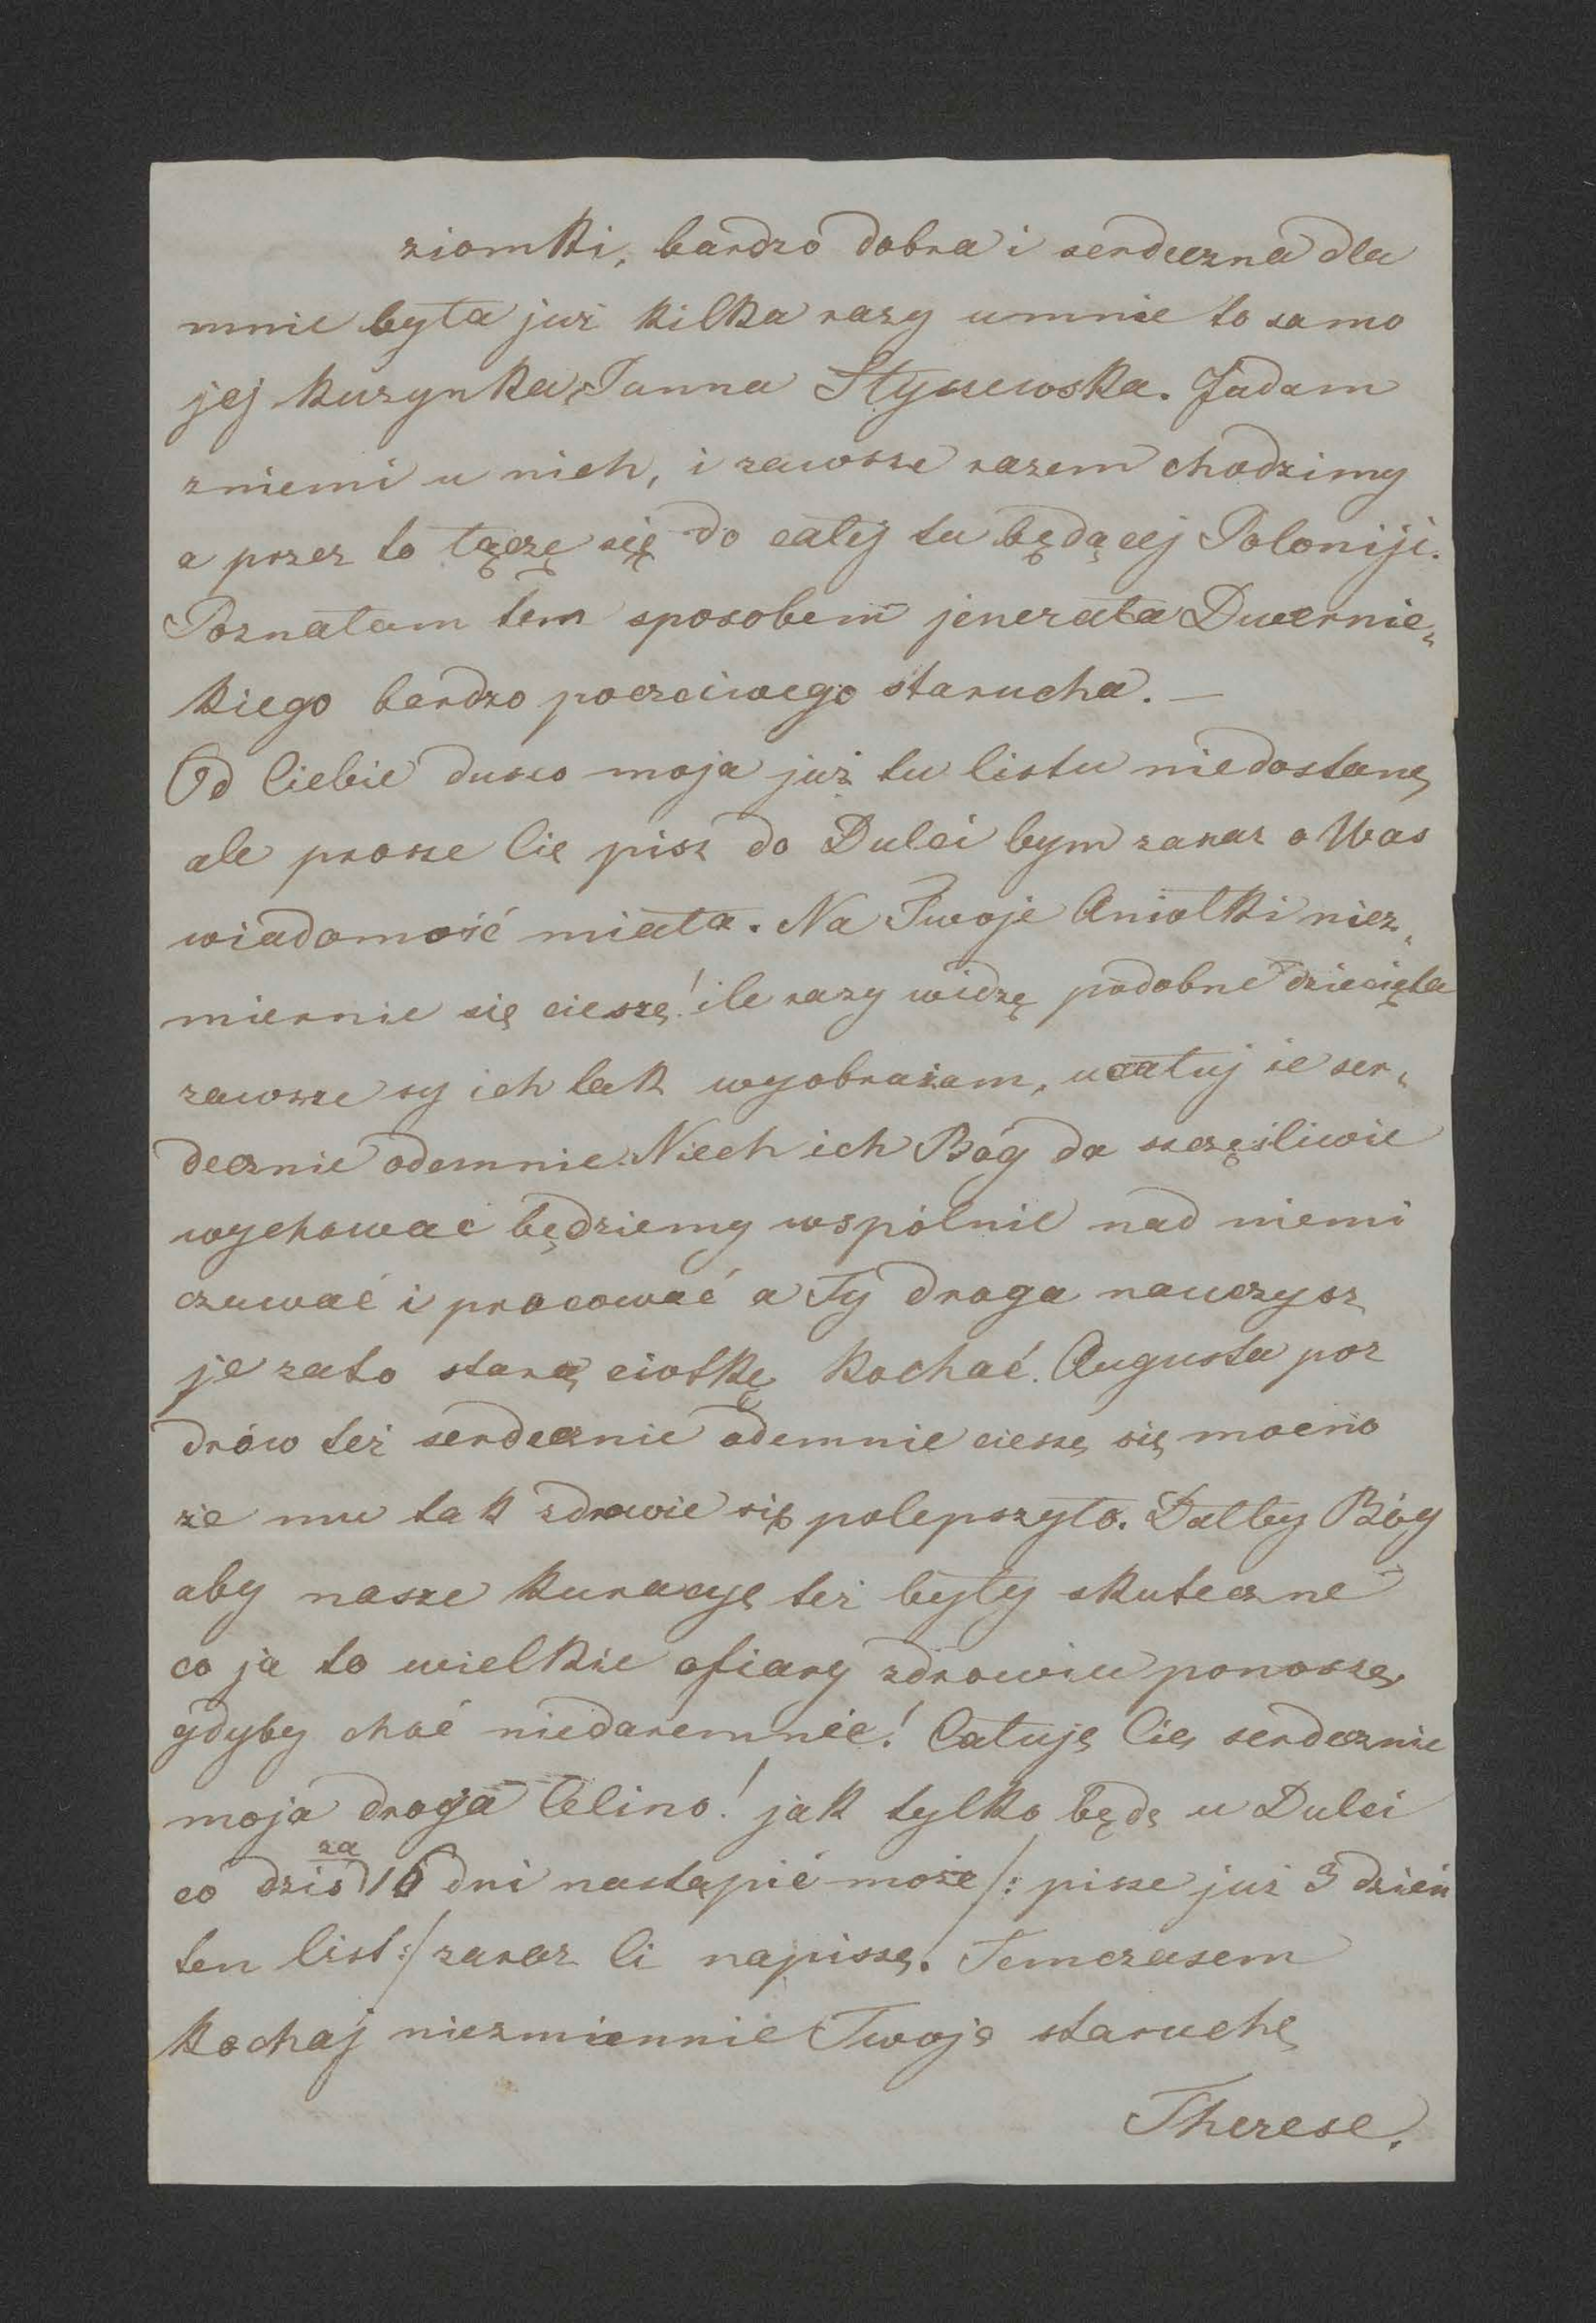 ziomki, bardzo dobra i serdeczna dla
mnie była już kilka razy umnie to samo
jej kuzynka Panna Jadam
zniemi u nich, i zawsze razem chodzimy
a przez to łączę się do całej tu będącej Poloniji.
Poznałam tem sposobem jenerała Dwernic-
kiego bardzo poczciwego starucha. —
Od Ciebie duszo moja już tu listu niedostanę
ale prosze Cię pisz do Dulci bym zaraz o Was
wiadomość miała. Na Twoje Aniołki niez-
miernie się cieszę! ile razy widzę podobne dziecięta
zawsze sy ich tak wyobrażam, ucałuj je ser-
decznie odemnie. Niech ich Bóg da szczęśliwie
wychować będziemy wspólnie nad niemi
czuwać i pracować a Ty droga nauczysz
je zato starą ciotkę kochać. Augusta poz
drów też serdecznie odemnie cieszę się mocno
że mu tak zdrowie się polepszyło. Dałby Bóg
aby nasze kuracyę też były skuteczne
co ja to wielkie ofiary zdrowiu ponoszę,
gdyby choć niedaremnie! Całuję Cię serdecznie
moja droga Celino! jak tylko będę u Dulci
co dziś za 16 dni nastąpić może /: pisze już 3 dzień
ten list :/ zaraz Ci napiszę. Temczasem
kochaj niezmiennie Twoję staruchę
Therese.